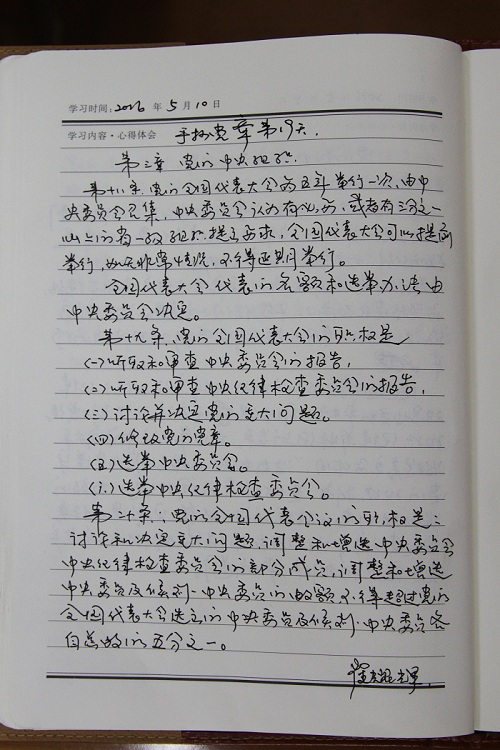 学习时间：2016 年 5 月 10 日
学习内容·心得体会 手抄党章第19天.
第三章 党的中央组织.
第十八条 党的全国代表大会每五年举行一次,由中
央委员会召集,中央委员会认为有必要,或者有三分之一
以上的省一级组织提出要求,全国代表大会可以提前
举行,如无非常情况,不得延期举行。
全国代表大会代表的名额和选举办法由
中央委员会决定。
第十九条,党的全国代表大会的职权是
(一)听取和审查中央委员会的报告,
(二)听取和审查中央纪律检查委员会的报告,
(三)讨论并决定党的重大问题。
(四)修改党的党章。
(五)选举中央委员会。
(六)选举中央纪律检查委员会。
第二十条:党的全国代表会议的职权是:
讨论和决定重大问题,调整和增选中央委员会
中央纪律检查委员会的部分成员,调整和增选
中央委员及候补中央委员的数额不得超过党的
全国代表大会选出的中央委员及候补中央委员各
自总数的五分之一。